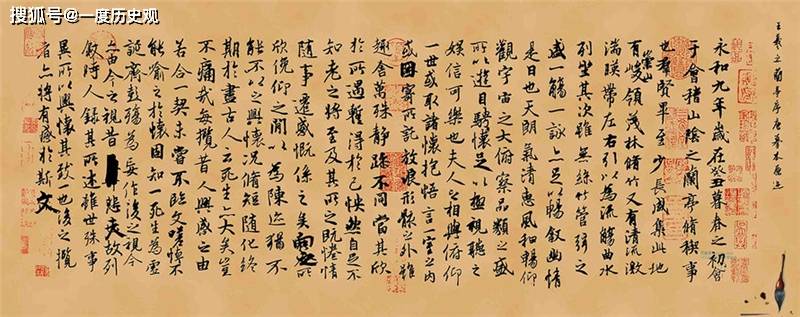 搜狐号@一度历史观
王羲之蘭亭序唐摹本原迹
永和九年歲在癸丑暮春之初會
于會稽山陰之蘭亭脩稧事
也羣賢畢至少長咸集此地
有崇山峻領茂林脩竹又有清流激
湍暎帶左右引以為流觴曲水
列坐其次雖無絲竹管弦之
盛一觴一詠亦足以暢敘幽情
是日也天朗氣清惠風和暢仰
觀宇宙之大俯察品類之盛
所以遊目騁懷足以極視聽之
娛信可樂也夫人之相與俯仰
一世或取諸懷抱悟言一室之內
或因寄所託放浪形骸之外雖
趣舍萬殊靜躁不同當其欣
於所遇暫得於己怏然自足不
知老之將至及其所之既惓情
隨事遷感慨係之矣向之所
欣俛仰之閒以為陳迹猶不
能不以之興懷況脩短隨化終
期於盡古人云死生亦大矣豈
不痛哉每攬昔人興感之由
若合一契未嘗不臨文嗟悼不
能喻之於懷固知一死生為虛
誕齊彭殤為妄作後之視今
亦由今之視昔悲夫故列
敘時人錄其所述雖世殊事
異所以興懷其致一也後之攬
者亦將有感於斯文